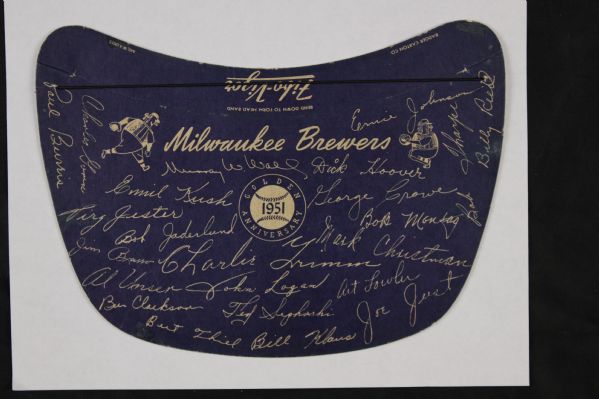 BADGER CARTON CO
MILWAUKEE
Fibo-Vizor
BEND DOWN TO FORM HEAD BAND
Milwaukee Brewers
Ernie Johnson
Charlie Gorin
Paul Burris
Billy Reed
Murray W Wall
Dick Hoover
Emil Kush
George Crowe
GOLDEN
1951
ANNIVERSARY
Virg Jester
Bob Jaderlund
Bob Montag
Mark Christman
Charlie Grimm
Al Unser
John Logan
Art Fowler
Joe Just
Bert Thiel
Bill Klaus